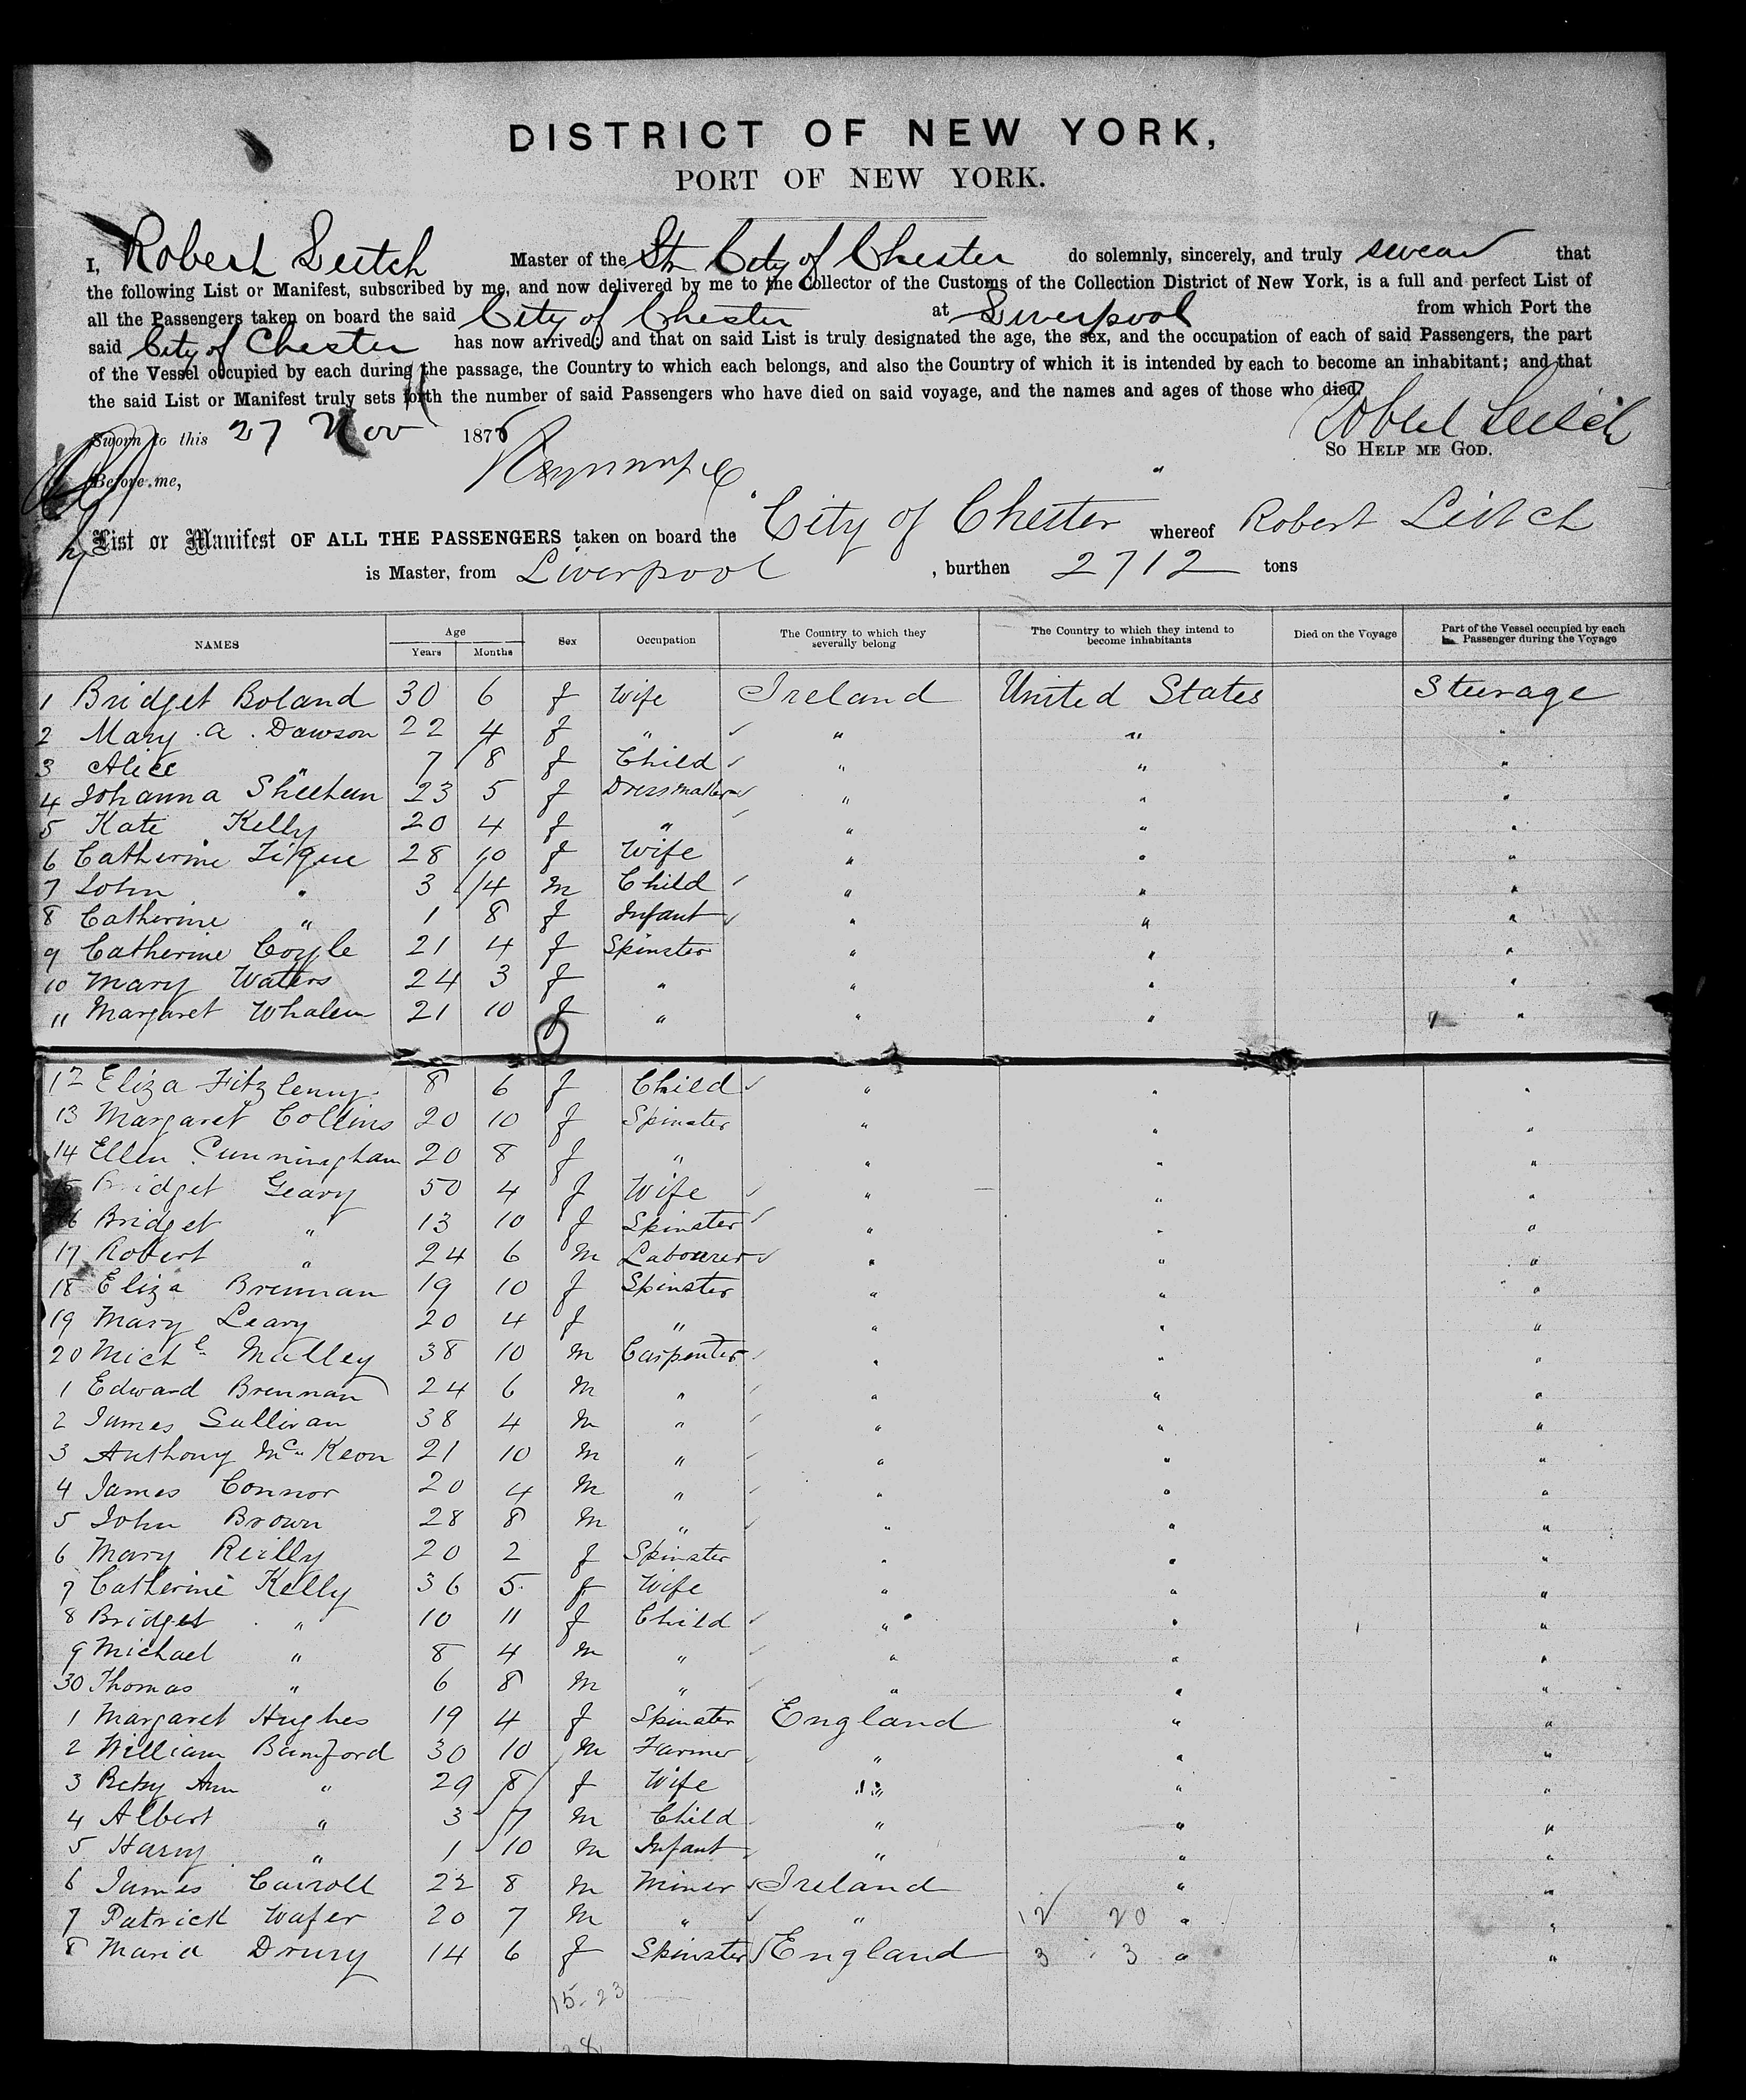 DISTRICT OF NEW YORK,
PORT OF NEW YORK.
I, Robert Leitch Master of the Str City of Chester do solemnly, sincerely, and truly swear that
the following List or Manifest, subscribed by me, and now delivered by me to the Collector of the Customs of the Collection District of New York, is a full and perfect List of
all the Passengers taken on board the said City of Chester at Liverpool from which Port the
said City of Chester has now arrived; and that on said List is truly designated the age, the sex, and the occupation of each of said Passengers, the part
of the Vessel occupied by each during the passage, the Country to which each belongs, and also the Country of which it is intended by each to become an inhabitant; and that
the said List or Manifest truly sets forth the number of said Passengers who have died on said voyage, and the names and ages of those who died.
Robert Leitch
Sworn to this 27 Nov 187
So HELP ME GOD.
Before me,
List or Manifest OF ALL THE PASSENGERS taken on board the City of Chester whereof Robert Leitch
is Master, from Liverpool , burthen 2712 tons
NAMES Age Years Months Sex Occupation The Country to which they severally belong The Country to which they intend to become inhabitants Died on the Voyage Part of the Vessel occupied by each Passenger during the Voyage
1 Bridget Boland 30 6 f Wife Ireland United States Steerage
2 Mary A. Dawson 22 4 f " " " "
3 Alice " 7 8 f Child " " "
4 Johanna Sheehan 23 5 f Dressmaker " " "
5 Kate Kelly 20 4 f " " " "
6 Catherine Tigue 28 10 f Wife " " "
7 John " 3 4 m Child " " "
8 Catherine " 1 8 f Infant " " "
9 Catherine Coyle 21 4 f Spinster " " "
10 Mary Waters 24 3 f " " " "
11 Margaret Whalen 21 10 f " " " "
12 Eliza 8 6 f Child " " "
13 Margaret Collins 20 10 f Spinster " " "
14 Ellen Cunningham 20 8 f " " " "
15 Bridget Geary 50 4 f Wife " " "
16 Bridget " 13 10 f Spinster " " "
17 Robert " 24 6 m Labourer " " "
18 Eliza Brennan 19 10 f Spinster " " "
19 Mary Leary 20 4 f " " " "
20 Michl Malley 38 10 m Carpenter " " "
1 Edward Brennan 24 6 m " " " "
2 James Sullivan 38 4 m " " " "
3 Anthony McKeon 21 10 m " " " "
4 James Connor 20 4 m " " " "
5 John Brown 28 8 m " " " "
6 Mary Reilly 20 2 f Spinster " " "
7 Catherine Kelly 36 5 f Wife " " "
8 Bridget " 10 11 f Child " " "
9 Michael " 8 4 m " " " "
30 Thomas " 6 8 m " " " "
1 Margaret Hughes 19 4 f Spinster England " "
2 William Bamford 30 10 m Farmer " " "
3 Betsy Ann " 29 8 f Wife " " "
4 Albert " 3 7 m Child " " "
5 Harry " 1 10 m Infant " " "
6 James Carroll 22 8 m Miner Ireland " "
7 Patrick Wafer 20 7 m " " 12 20 " "
8 Maria Drury 14 6 f Spinster England 3 3 " "
15-23